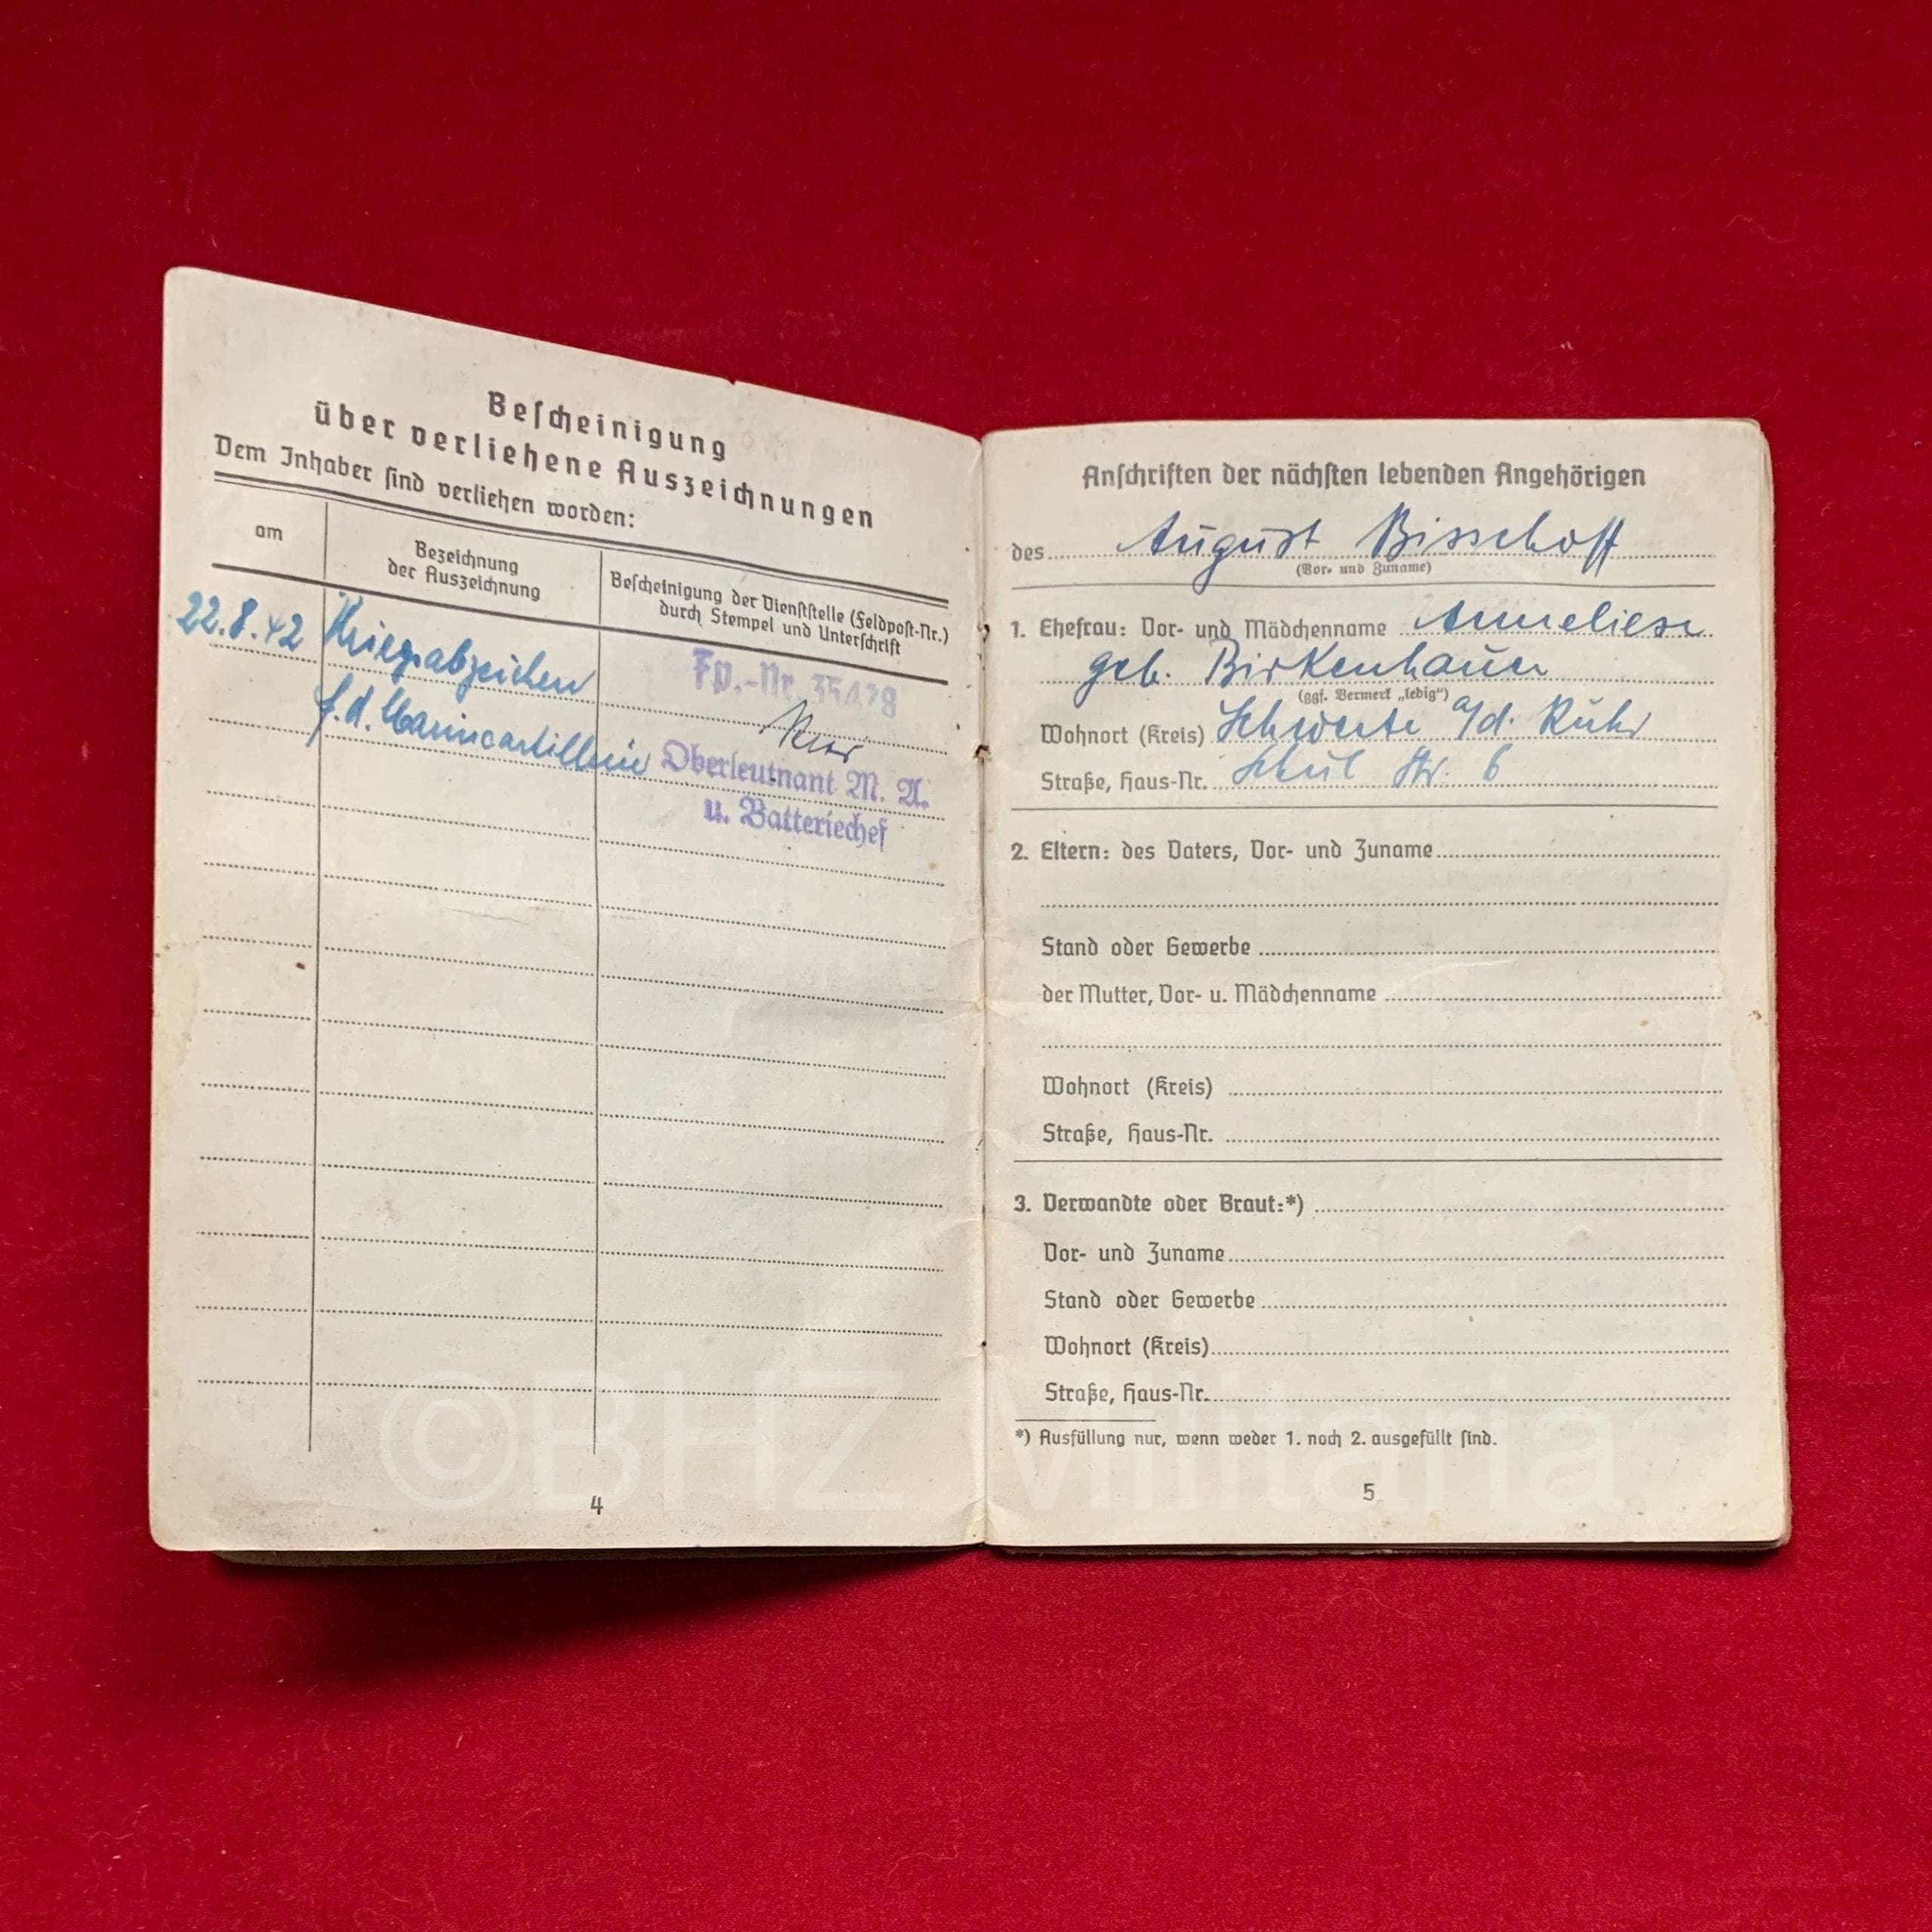 Bescheinigung
über verliehene Auszeichnungen
Dem Inhaber sind verliehen worden:
am
Bezeichnung
der Auszeichnung
Bescheinigung der Dienststelle (Feldpost-Nr.)
durch Stempel und Unterschrift
22.8.42 Kriegsabzeichen
f. d. Marineartillerie
Fp.-Nr. 35429
Oberleutnant M. A.
u. Batteriechef
4
Anschriften der nächsten lebenden Angehörigen
des August Bisschoff
(Vor- und Zuname)
1. Ehefrau: Vor- und Mädchenname Anneliese
geb. Birkenhauer
(ggf. Vermerk „ledig“)
Wohnort (Kreis) Schwerte a/d. Ruhr
Straße, Haus-Nr. Schul Str. 6
2. Eltern: des Vaters, Vor- und Zuname
Stand oder Gewerbe
der Mutter, Vor- u. Mädchenname
Wohnort (Kreis)
Straße, Haus-Nr.
3. Verwandte oder Braut:*)
Vor- und Zuname
Stand oder Gewerbe
Wohnort (Kreis)
Straße, Haus-Nr.
*) Ausfüllung nur, wenn weder 1. noch 2. ausgefüllt sind.
5
©BHZ Militaria